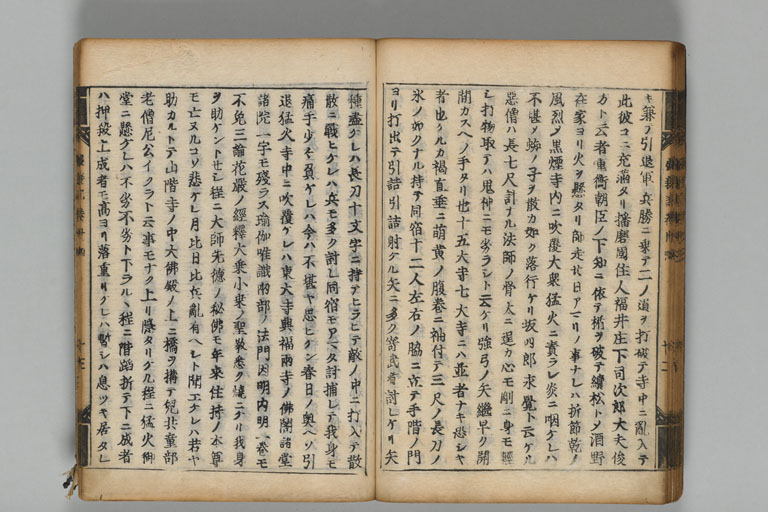 キ兼ヲ引退軍兵勝ニ乗テ二ノ道ヲ打破テ寺中ニ亂入テ
此彼コニ充滿タリ播磨國住人福井庄下司次郎大夫俊
カト云者重衡朝臣ノ下知ニ依テ楯ヲ破テ續松トメ酒野
在家ヨリ火ヲ懸タリ師走廿日アマリノ事ナレハ折節乾ノ
風烈ノ黒煙寺内ニ吹覆大衆猛火ニ責ラレ炎ニ咽ケレハ
不堪メ蜘ノ子ヲ散カ如ク落行ケリ坂四郎永覺ト云ケル
惡僧ハ長七尺計ナル法師ノ骨太ニ逞カ心モ剛ニ身モ輕
シ打物取テハ鬼神ニモ劣ラシト云ケリ強弓ノ矢繼早ク開
間カスヘノ手タリ也十五大寺七大寺ニハ並者ナキ恐シキ
者也ケルカ褐直垂ニ萌黄ノ腹卷ニ袖付テ三尺ノ長刀ノ
氷ノ如クナル持テ同宿十二人左右ノ脇ニ立テ手階ノ門
ヨリ打出テ引詰引詰射ケル矢ニ多ク寄武者討レケリ矢
種盡ケレハ長刀十文字ニ持テヒラヒテ敵ノ中ニ打入テ散
散ニ戰ヒケレハ兵モ多ク討レ同宿モアマタ討捕レテ我身モ
痛手少々負ケレハ今ハ不堪ヤ思ヒケン春日ノ奥ヘソ引
退猛火寺中ニ吹覆ケレハ東大寺興福兩寺ノ佛閣諸堂
諸院一字モ殘ラス瑜伽唯識兩部ノ法門因明内明一卷モ
不免三論花嚴ノ經釋大乗小乗ノ聖敎悉ク燒ニケリ我身
ヲ助ケントセシ程ニ大師先德ノ秘佛モ年來住持ノ本尊
モ亡ヌルコソ悲ケレ月比日比兵亂有ヘシト聞エケレハ若ヤ
助カルトテ山階寺ノ中大佛殿ノ上ニ橋ヲ構テ兒共童部
老僧尼公イクラト云事モナク上リ隱タリケル程ニ猛火御
堂ニ懸ケレハ不劣不劣ト下ラルヽ程ニ階蹈折テ下ニ成者
ハ押殺上成者モ高ヨリ落重リケレハ暫シハ息ツキ居タレ